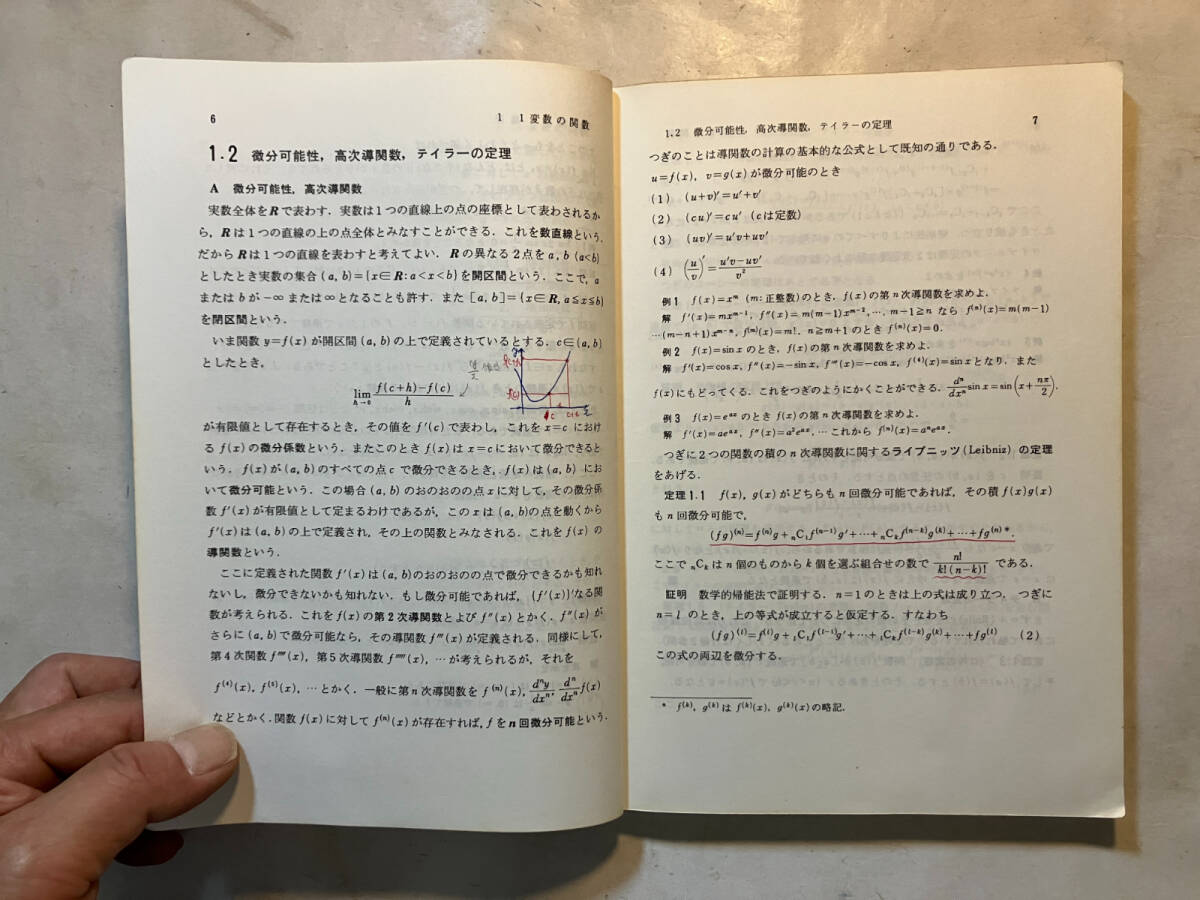 6
1 1変数の関数
1.2 微分可能性，高次導関数，テイラーの定理
A 微分可能性，高次導関数
実数全体をRで表わす．実数は1つの直線上の点の座標として表わされるか
ら，Rは1つの直線の上の点全体とみなすことができる．これを数直線という．
だからRは1つの直線を表わすと考えてよい．Rの異なる2点をa, b (a<b)
としたとき実数の集合 (a, b)={x∈R:a<x<b}を開区間という．ここで，a
またはbが−∞または∞となることも許す．また [a, b]={x∈R, a≦x≦b}
を閉区間という．
いま関数 y=f(x) が開区間 (a, b) の上で定義されているとする．c∈(a, b)
としたとき，
lim_{h→0} (f(c+h)−f(c))/h
f(c)
c
c+h
が有限値として存在するとき，その値を f′(c) で表わし，これを x=c におけ
る f(x) の微分係数という．またこのとき f(x) は x=c において微分できると
いう．f(x) が (a, b) のすべての点 c で微分できるとき，f(x) は (a, b) にお
いて微分可能という．この場合 (a, b) のおのおのの点 x に対して，その微分係
数 f′(x) が有限値として定まるわけであるが，この x は (a, b)の点を動くから
f′(x) は (a, b) の上で定義され，その上の関数とみなされる．これを f(x) の
導関数という．
ここに定義された関数 f′(x) は (a, b)のおのおのの点で微分できるかも知れ
ないし，微分できないかも知れない．もし微分可能であれば，(f′(x))′なる関
数が考えられる．これを f(x) の第2次導関数とよび f″(x) とかく．f″(x) が
さらに (a, b) で微分可能なら，その導関数 f‴(x) が定義される．同様にして，
第4次関数 f⁗(x)，第5次導関数 f′′′′′(x)，…が考えられるが，それを
f⁽⁴⁾(x), f⁽⁵⁾(x)，…とかく．一般に第 n 次導関数を f⁽ⁿ⁾(x), dⁿy/dxⁿ, dⁿ/dxⁿ f(x)
などとかく．関数 f(x) に対して f⁽ⁿ⁾(x) が存在すれば，f を n 回微分可能という．
1.2 微分可能性，高次導関数，テイラーの定理
7
つぎのことは導関数の計算の基本的な公式として既知の通りである．
u=f(x)，v=g(x) が微分可能のとき
(1) (u+v)′=u′+v′
(2) (cu)′=cu′ (cは定数)
(3) (uv)′=u′v+uv′
(4) (u/v)′=(u′v−uv′)/v²
例1 f(x)=xᵐ (m:正整数)のとき，f(x) の第 n 次導関数を求めよ．
解 f′(x)=mxᵐ⁻¹, f″(x)=m(m−1)xᵐ⁻²，…，m−1≧n なら f⁽ⁿ⁾(x)=m(m−1)
…(m−n+1)xᵐ⁻ⁿ, f⁽ᵐ⁾(x)=m!．n≧m+1 のとき f⁽ⁿ⁾(x)=0．
例2 f(x)=sin x のとき，f(x) の第 n 次導関数を求めよ．
解 f′(x)=cos x, f″(x)=−sin x, f‴(x)=−cos x, f⁽⁴⁾(x)=sin x となり，また
f(x)にもどってくる．これをつぎのようにかくことができる．dⁿ/dxⁿ sin x=sin(x+nπ/2)．
例3 f(x)=eᵃˣ のとき f(x) の第 n 次導関数を求めよ．
解 f′(x)=aeᵃˣ, f″(x)=a²eᵃˣ，…これから f⁽ⁿ⁾(x)=aⁿeᵃˣ．
つぎに2つの関数の積の n 次導関数に関するライプニッツ(Leibniz) の定理
をあげる．
定理1.1 f(x), g(x) がどちらも n 回微分可能であれば，その積 f(x)g(x)
も n 回微分可能で，
(fg)⁽ⁿ⁾=f⁽ⁿ⁾g+ₙC₁f⁽ⁿ⁻¹⁾g′+…+ₙCₖf⁽ⁿ⁻ᵏ⁾g⁽ᵏ⁾+…+fg⁽ⁿ⁾*．
ここで ₙCₖ は n 個のものから k 個を選ぶ組合せの数で n!/(k!(n−k)!) である．
証明 数学的帰能法で証明する．n=1 のときは上の式は成り立つ．つぎに
n=l のとき，上の等式が成立すると仮定する．すなわち
(fg)⁽ˡ⁾=f⁽ˡ⁾g+ₗC₁f⁽ˡ⁻¹⁾g′+…+ₗCₖf⁽ˡ⁻ᵏ⁾g⁽ᵏ⁾+…+fg⁽ˡ⁾ (2)
この式の両辺を微分する．
* f⁽ᵏ⁾, g⁽ᵏ⁾ は f⁽ᵏ⁾(x), g⁽ᵏ⁾(x) の略記．